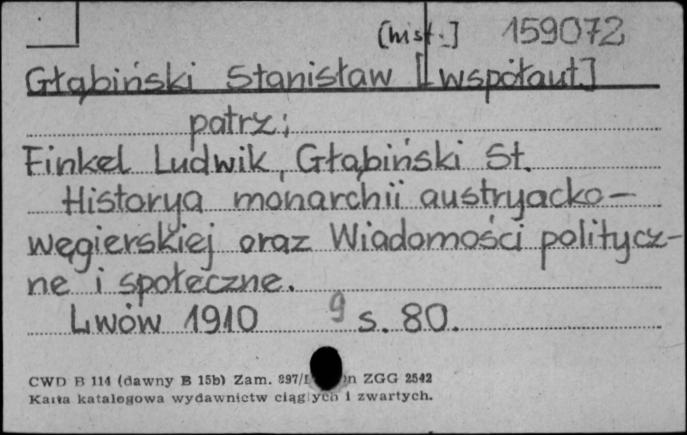 [hist.] 159072
Głąbiński Stanisław [współaut]
patrz;
Finkel Ludwik, Głąbiński St.
Historya monarchii austryacko-
węgierskiej oraz Wiadomości politycz-
ne i społeczne.
Lwów 1910 9 s. 80.
CWD B 114 (dawny B 15b) Zam. 897/ ZGG 2542
Karta katalogowa wydawnictw ciągłych i zwartych.